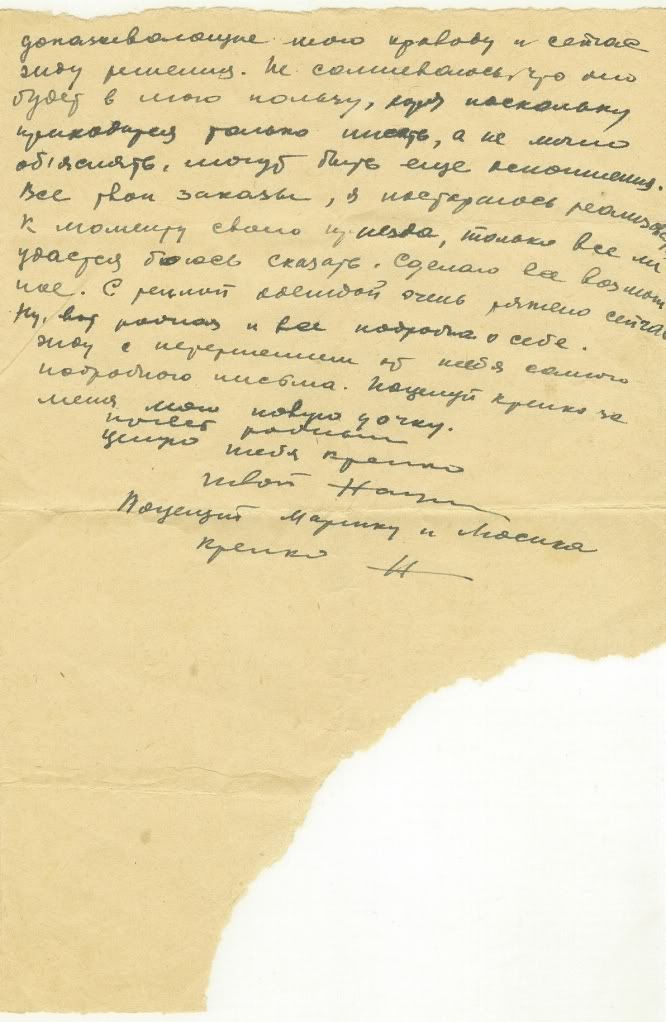 доказывающие мою правоту и сейчас
жду решения. Не сомневаюсь, что оно
будет в мою пользу, хотя поскольку
приходится только писать, а не лично
об'яснять, могут быть еще осложнения.
Все твои заказы, я постараюсь реализовать
к моменту своего приезда, только все ли
удастся боюсь сказать. Сделаю все возмож
ное. С теплой одеждой очень тяжело сейчас
Ну, вот родная и все подробно о себе.
Жду с нетерпением от тебя самого
подробного письма. Поцелуй крепко за
меня мою новую дочку.
Привет родным
Целую тебя крепко
твой
Поцелуй Маринку и Мосика
крепко Н